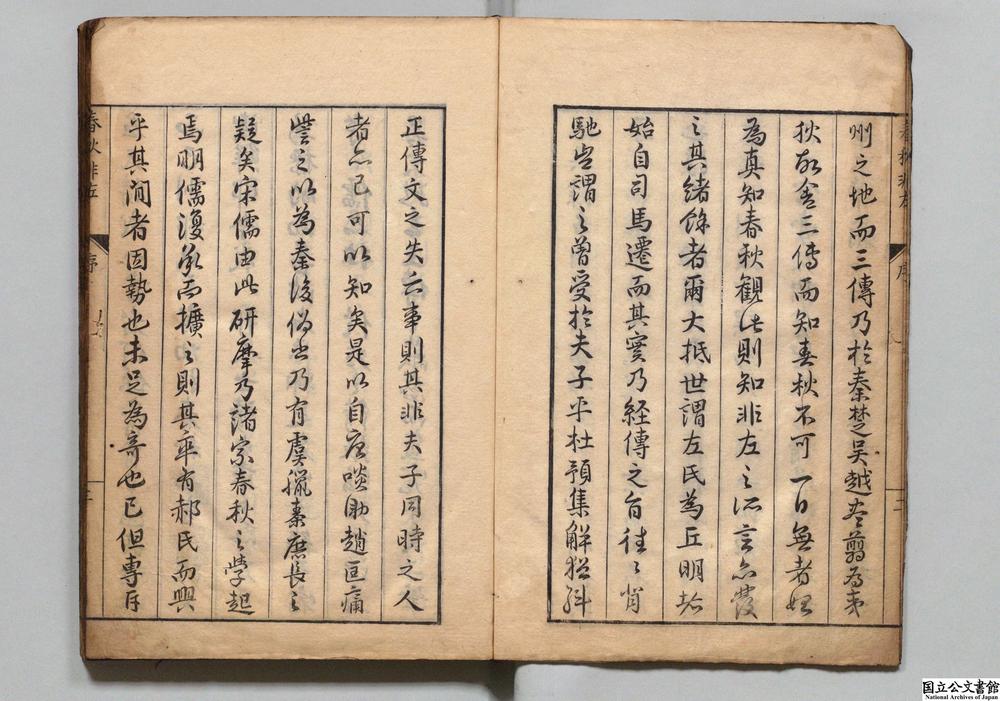 州之地而三傳乃於秦楚吳越盡翦為夷
狄欲舍三傳而知春秋不可一日無者始
為真知春秋觀此則知非左之所言亦發
之其緒餘者爾大抵世謂左氏為丘明哉
始自司馬遷而其實乃經傳之旨往〻背
馳豈謂之曾受於夫子乎杜預集解猶糾
正傳文之失云事則其非夫子同時之人
者亦已可以知矣是以自唐啖助趙匡痛
訾之以為秦後偽也乃有虞臘秦庶長之
疑矣宋儒由此研摩乃諸家春秋之學起
焉明儒復承而擴之則其卒有郝氏而興
乎其間者因勢也未足為奇也已但專斥
春秋非左
序
二
春秋非左
序
三
国立公文書館
National Archives of Japan